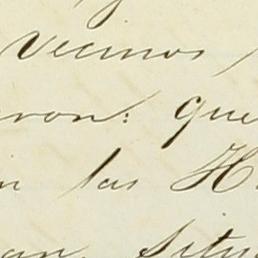 Vecinos
eron: que
n las H
an, Situ